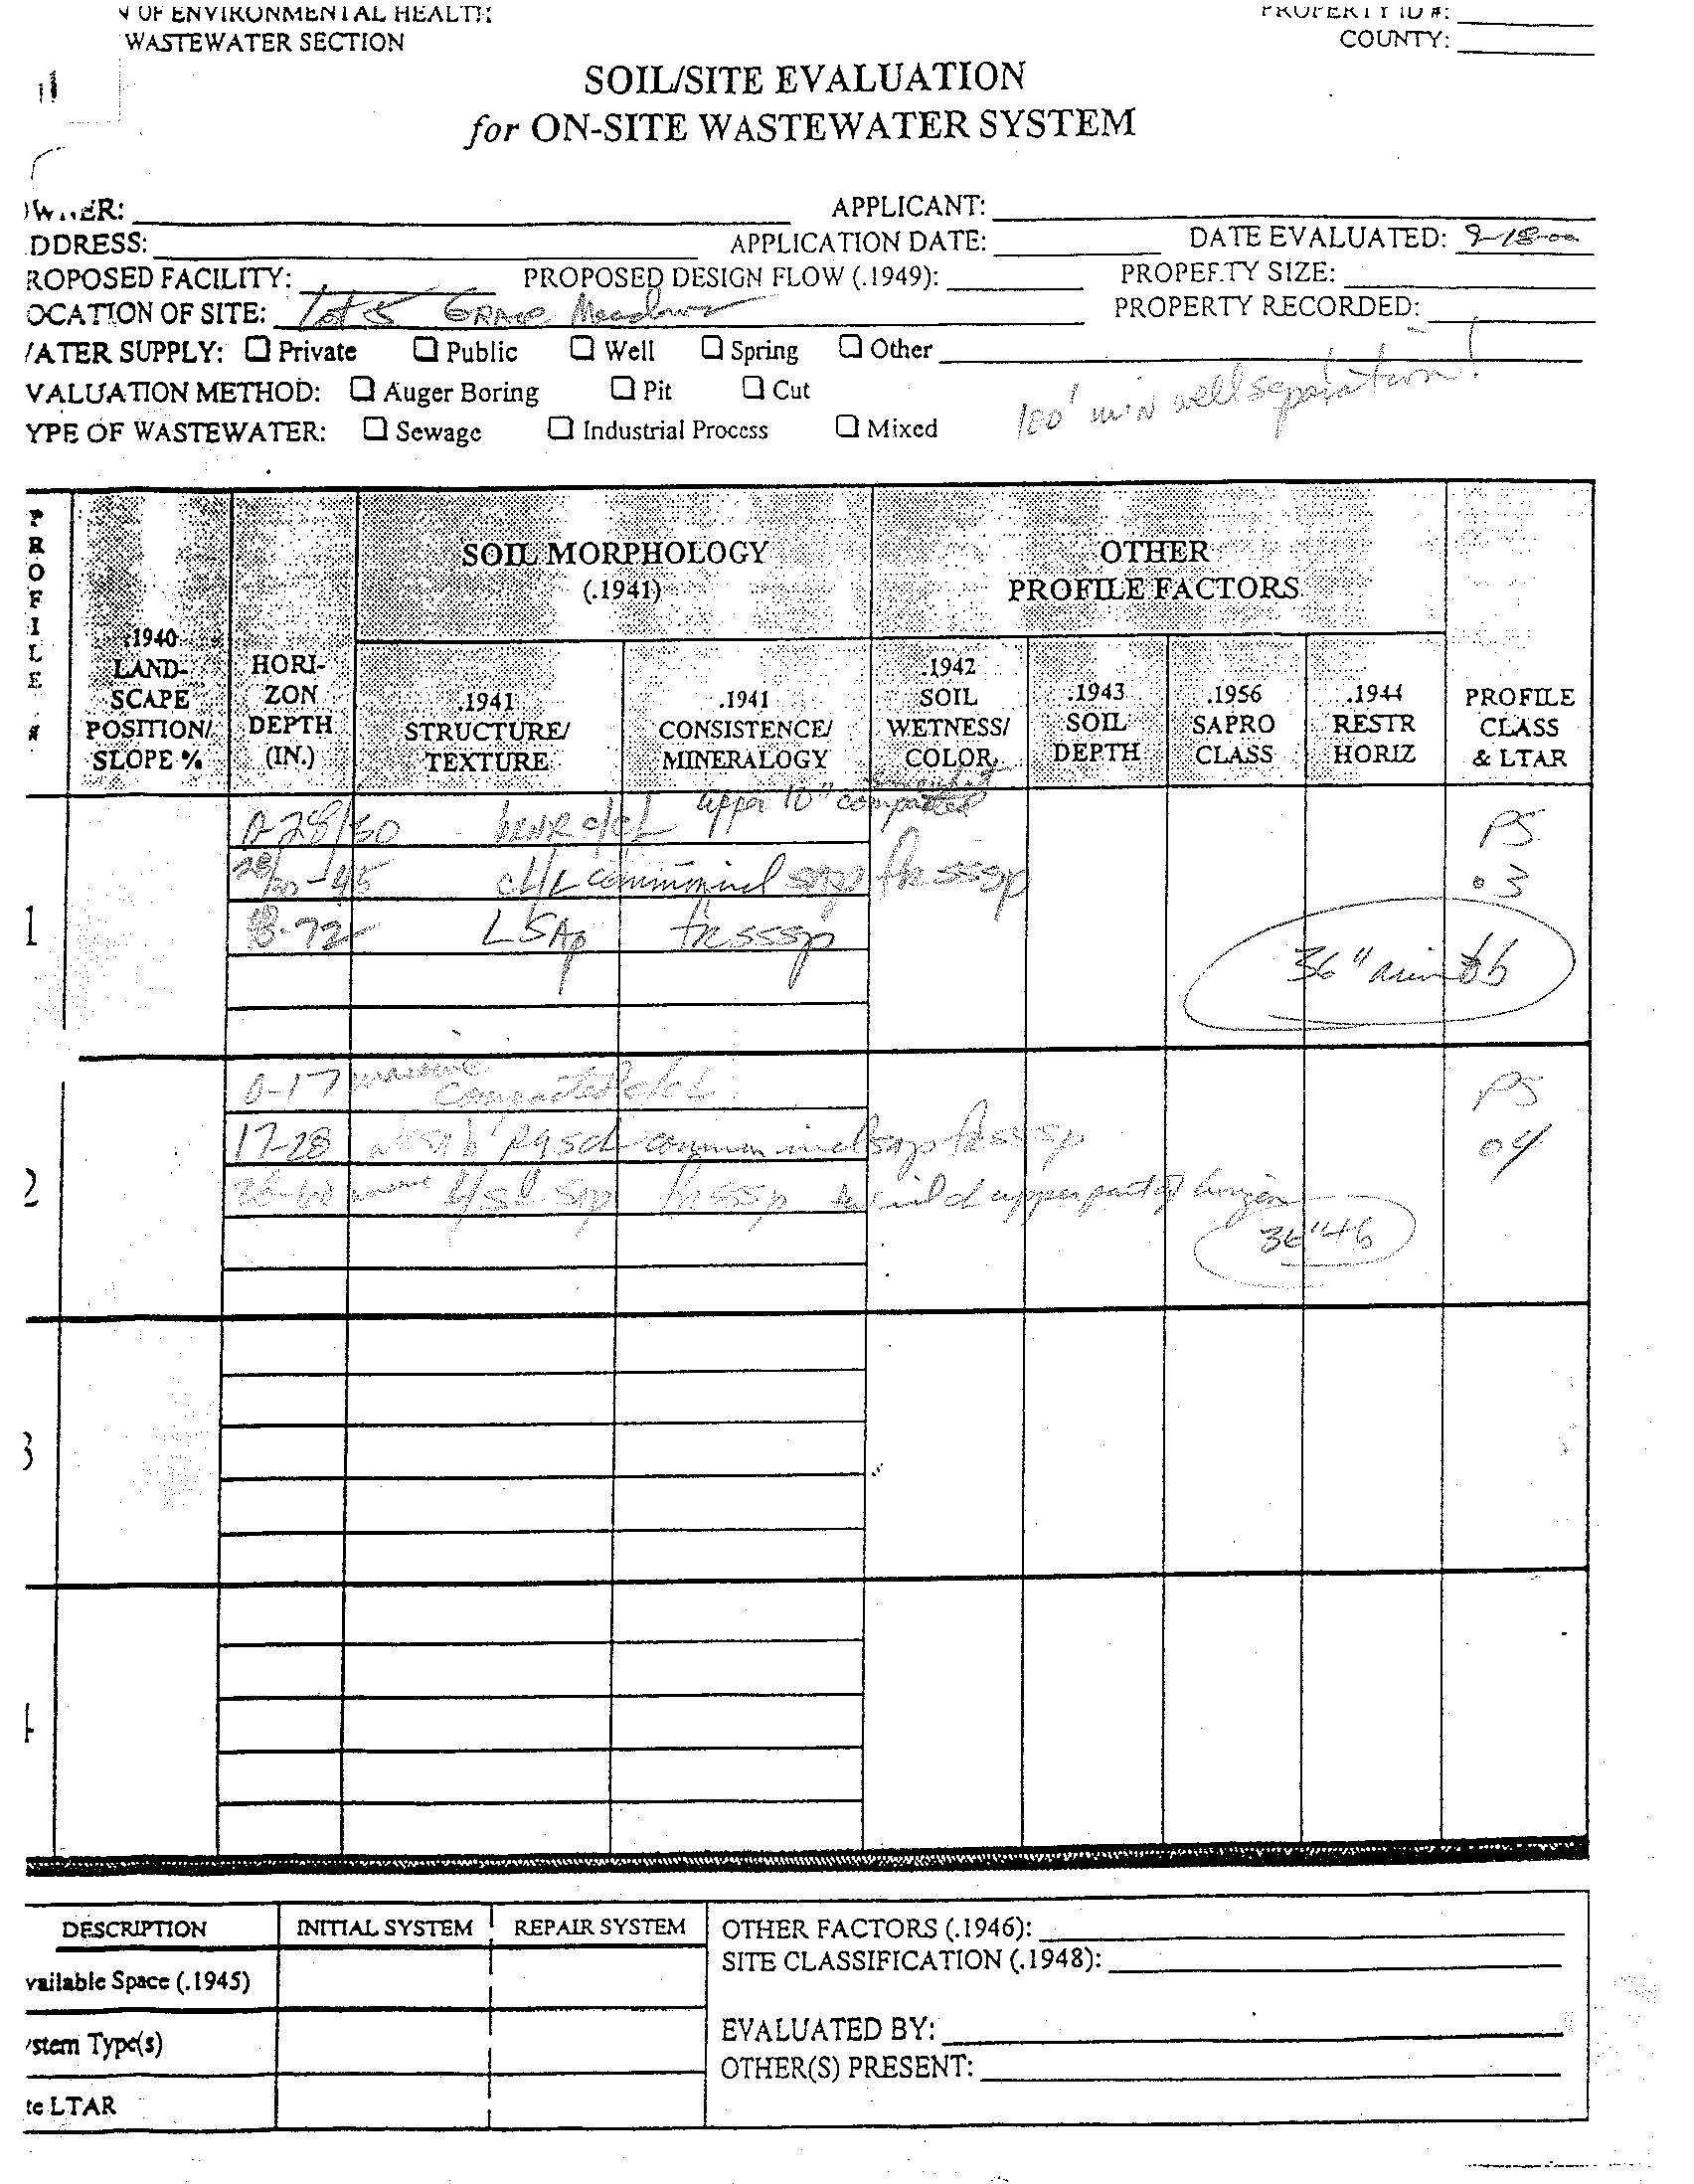 OF ENVIRONMENTAL HEALTH
PROPERTY ID #:
WASTEWATER SECTION
COUNTY:
SOIL/SITE EVALUATION
for ON-SITE WASTEWATER SYSTEM
APPLICANT:
DDRESS:
APPLICATION DATE:
DATE EVALUATED: 9-18-00
ROPOSED FACILITY:
PROPOSED DESIGN FLOW (.1949):
PROPERTY SIZE:
OCATION OF SITE: Lot 5 Grace Meadows
PROPERTY RECORDED:
ATER SUPPLY: ☐ Private ☐ Public ☐ Well ☐ Spring ☐ Other
VALUATION METHOD: ☐ Auger Boring ☐ Pit ☐ Cut
100' min well separation!
YPE OF WASTEWATER: ☐ Sewage ☐ Industrial Process ☐ Mixed
PROFILE #
.1940 LAND-SCAPE POSITION/ SLOPE %
HORI-ZON DEPTH (IN.)
SOIL MORPHOLOGY
(.1941)
.1941 STRUCTURE/ TEXTURE
.1941 CONSISTENCE/ MINERALOGY
OTHER
PROFILE FACTORS
.1942 SOIL WETNESS/ COLOR
.1943 SOIL DEPTH
.1956 SAPRO CLASS
.1944 RESTR HORIZ
PROFILE CLASS & LTAR
upper 10" compacted
28/30
PS
28/30-45 cl/L common incl sap fr ss sp
.3
1
-72 L SAp fr ss sp
36" min tb
0-17 massive compacted c/cL
PS
17-28 common incl sap fr ss sp
04
2
massive L/sl sap fr ss sp upper part of horizon
36" tb
3
4
DESCRIPTION
INITIAL SYSTEM
REPAIR SYSTEM
OTHER FACTORS (.1946):
SITE CLASSIFICATION (.1948):
vailable Space (.1945)
EVALUATED BY:
stem Type(s)
OTHER(S) PRESENT:
te LTAR